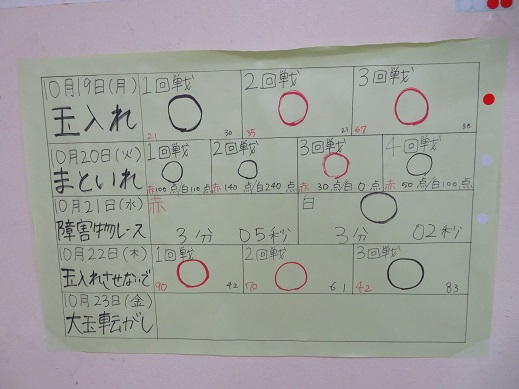 10月19日(月) 1回戦 2回戦 3回戦
玉入れ
21 30 35 21 67 38
10月20日(火) 1回戦 2回戦 3回戦 4回戦
まといれ
赤100点/白110点 赤140点/白240点 赤30点/白0点 赤50点/白100点
10月21日(水) 赤 白
障害物レース 3分05秒 3分02秒
10月22日(木) 1回戦 2回戦 3回戦
玉入れさせないぞ
90 42 70 61 42 83
10月23日(金)
大玉転がし